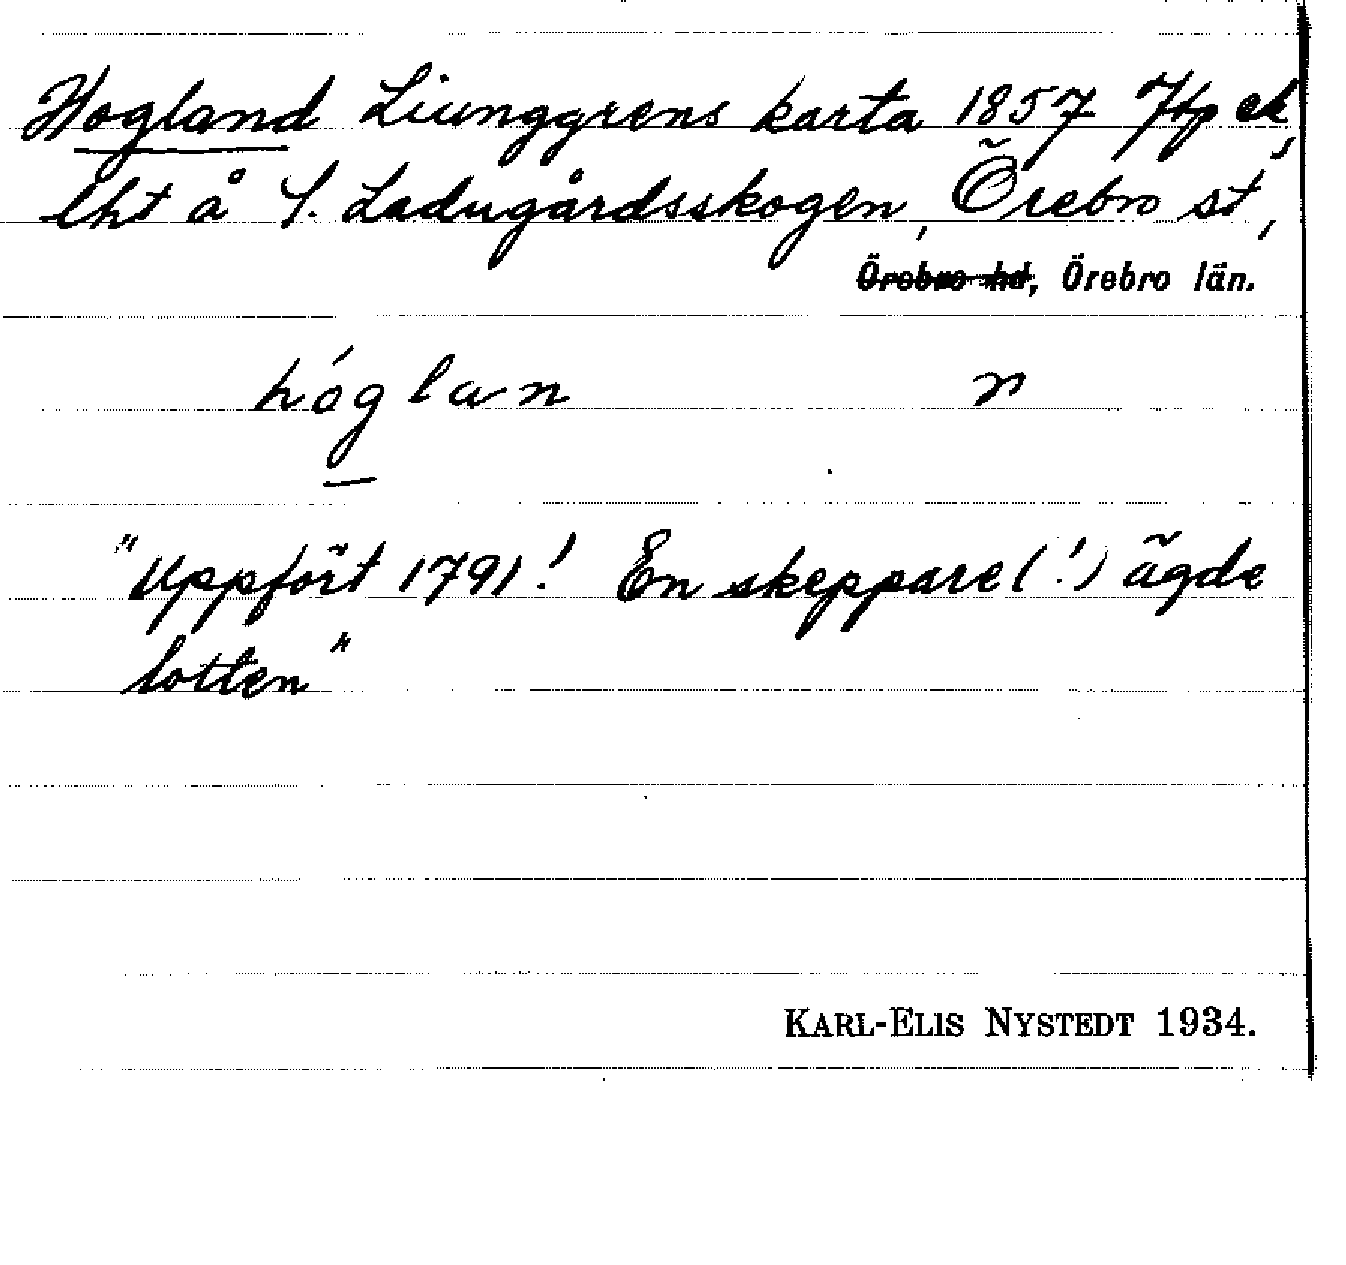 Hogland Liunggrens karta 1857 Hp ek,
lht å S. Ladugårdsskogen, Örebro st,
Örebro hd, Örebro län.
hóglan n
"Uppfört 1791! En skeppare (!) ägde
lotten"
KARL-ELIS NYSTEDT 1934.